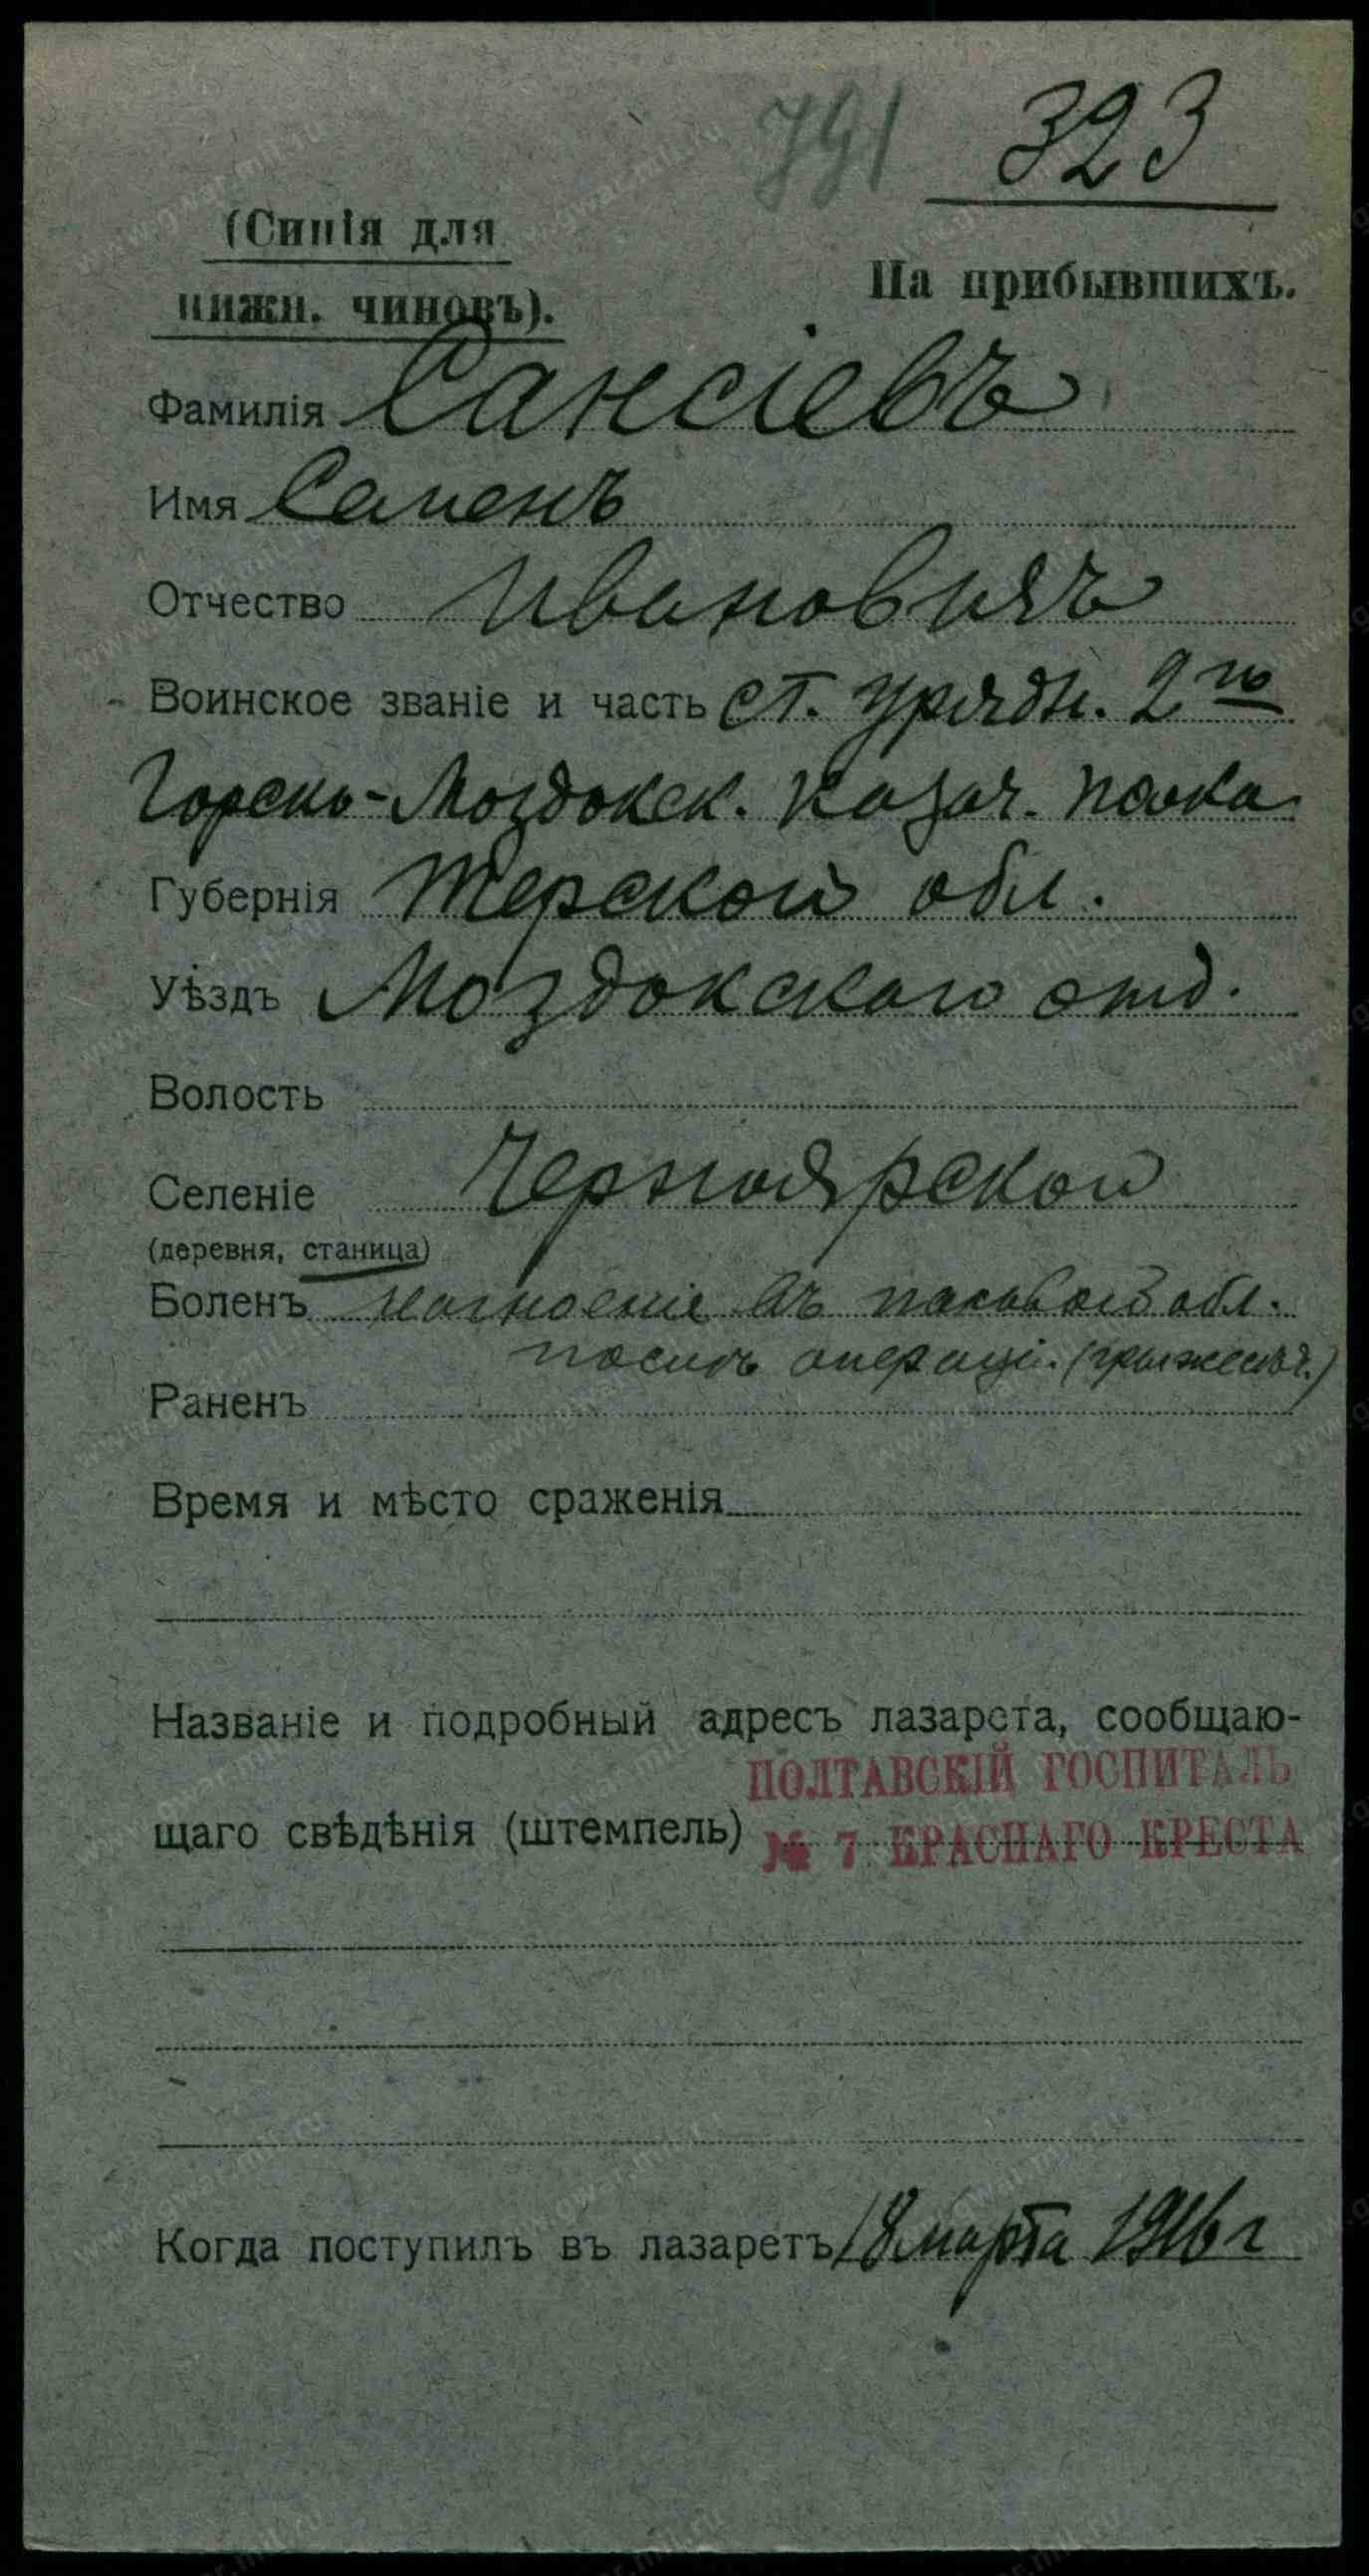 791 323
(Синія для
нижн. чиновъ).
На прибывшихъ.
Фамилія Сансіевъ
Имя Семенъ
Отчество Ивановичъ
Воинское званіе и часть ст. урядн. 2го
Горско-Моздокск. казач. полка
Губернія Терской обл.
Уѣздъ Моздокскаго отд.
Волость
Селеніе Черноярской
(деревня, станица)
Боленъ нагноеніе въ паховой обл.
послѣ операціи. (грыжесѣч.)
Раненъ
Время и мѣсто сраженія
Названіе и подробный адресъ лазарета, сообщаю-
ПОЛТАВСКІЙ ГОСПИТАЛЬ
щаго свѣдѣнія (штемпель) № 7 КРАСНАГО КРЕСТА
Когда поступилъ въ лазаретъ 18 марта 1916 г
www.gwar.mil.ru